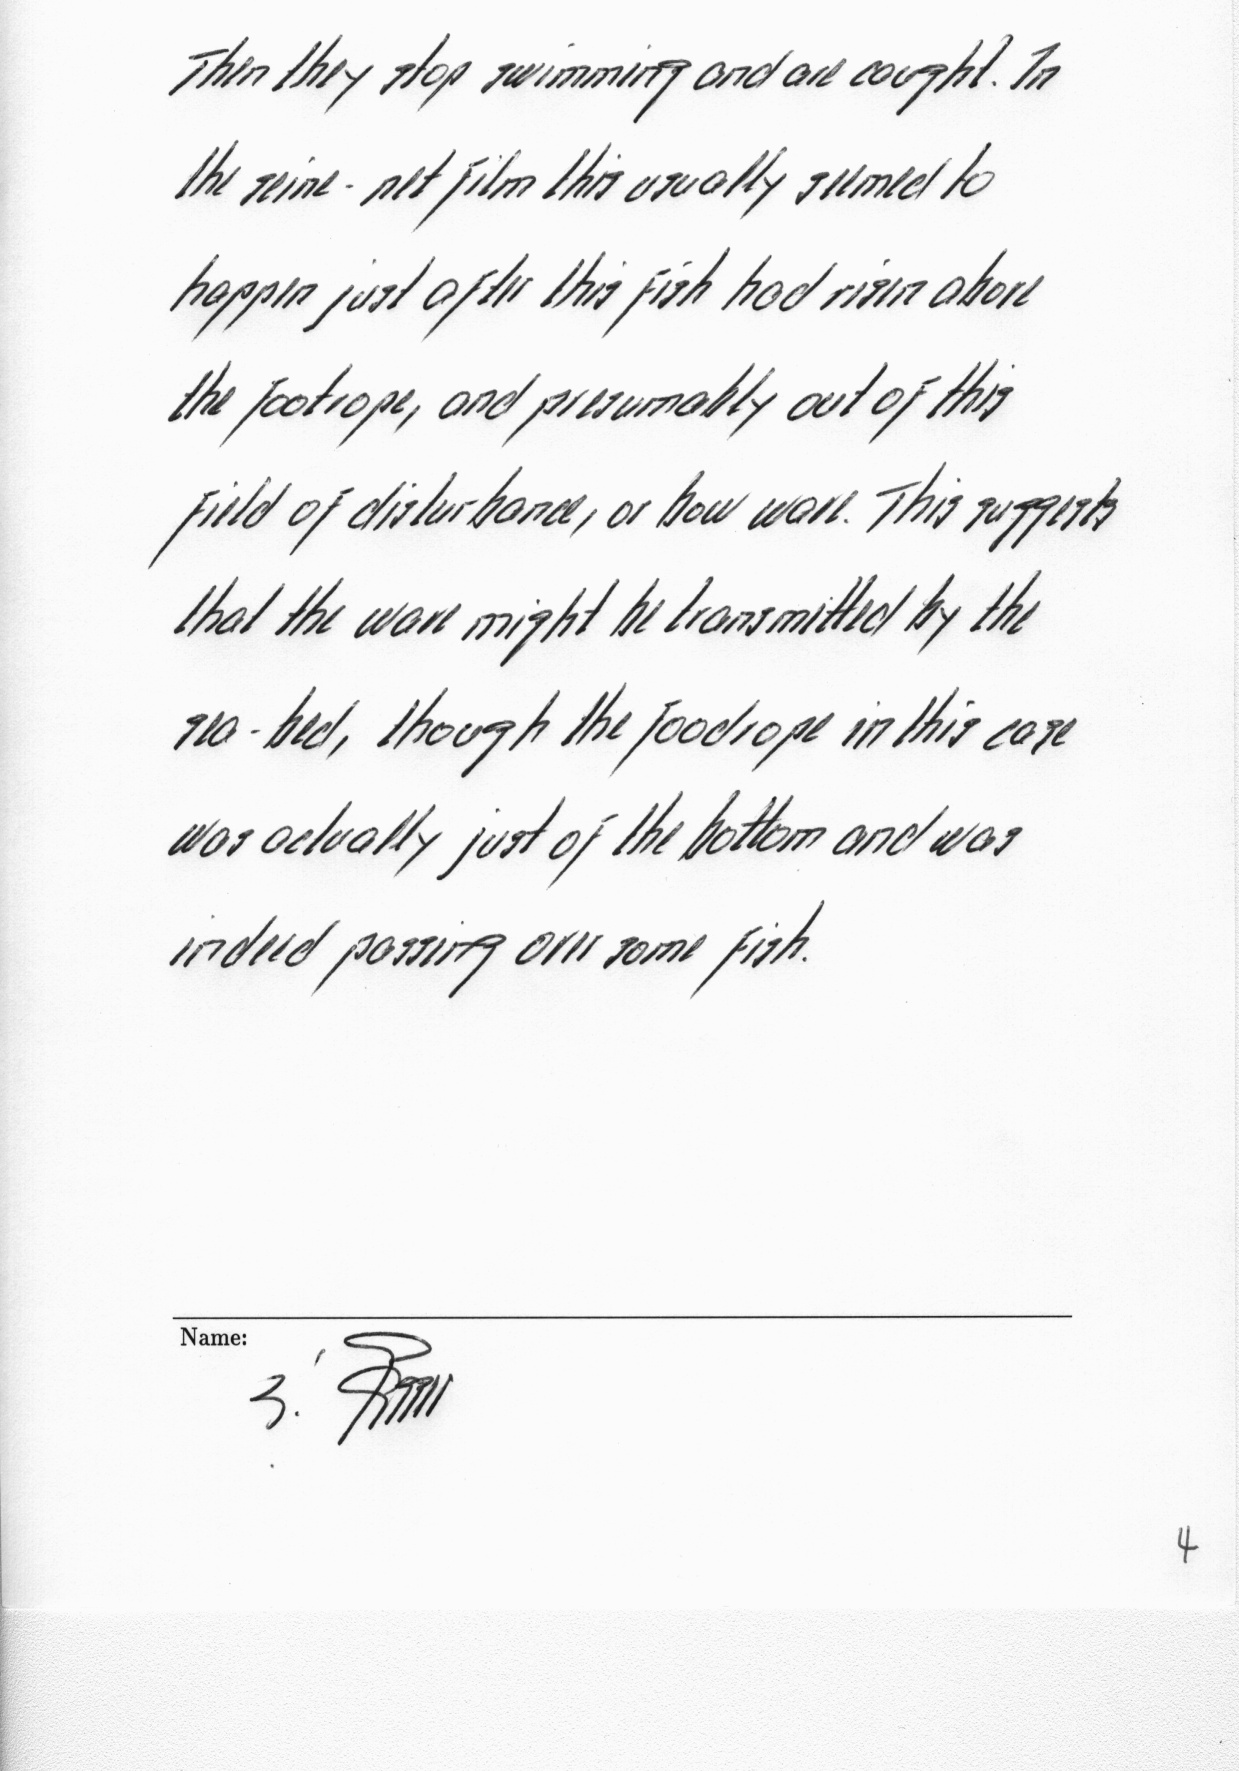 Then they stop swimming and are caught. In
the seine-net film this usually seemed to
happen just after this fish had risen above
the footrope, and presumably out of this
field of disturbance, or bow wave. This suggests
that the wave might be transmitted by the
sea-bed, though the foodrope in this case
was actually just of the bottom and was
indeed passing over some fish.
Name:
4